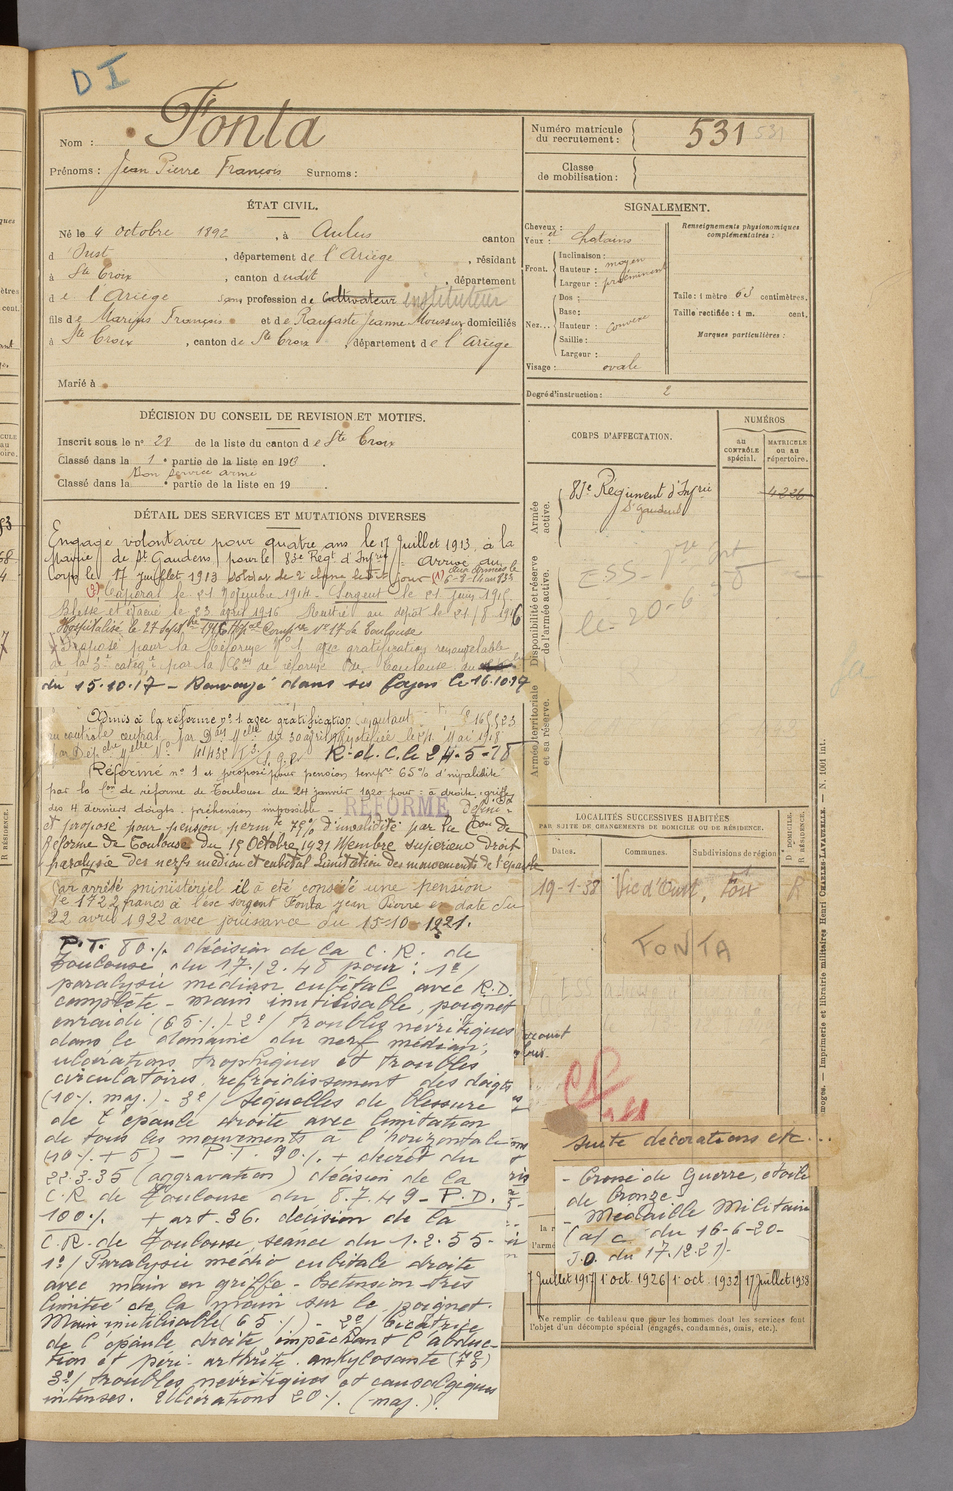 D I
Nom : Fonta
Prénoms : Jean Pierre François Surnoms :
ÉTAT CIVIL.
Né le 4 octobre 1892, à Aulus canton
d'Oust, département de l'Ariège, résidant
à Ste Croix, canton dudit, département
de l'Ariège sans profession de cultivateur instituteur
fils de Marius François et de Raufaste Jeanne domiciliés
à Ste Croix, canton de Ste Croix, département de l'Ariège
Marié à
DÉCISION DU CONSEIL DE REVISION ET MOTIFS.
Inscrit sous le no 28 de la liste du canton de Ste Croix
Classé dans la 1e partie de la liste en 1913.
Bon service armé
Classé dans la e partie de la liste en 19 .
DÉTAIL DES SERVICES ET MUTATIONS DIVERSES
Engagé volontaire pour quatre ans le 17 Juillet 1913, à la
Mairie de St Gaudens pour le 83e Régt d'Infrie Arrivé au
Corps le 17 juillet 1913 soldat de 2e classe le dit jour (1) aux armées le
(2) Caporal le 21 Décembre 1914 - Sergent le 21 juin 1915.
Blessé et évacué le 23 avril 1916 Rentré au dépôt le 21/8 1916
Hospitalisé le 27 Septbre 1916 Hopal Compre No 17 de Toulouse
Proposé pour la Réforme No 1 avec gratification renouvelable
de la 5e catégie par la Con de réforme de Toulouse du
du 15.10.17 - Renvoyé dans ses foyers le 16.10.17
Admis à la réforme no 1 avec gratification
au contrôle central par Don Melle du 30 avril 1918
R.d.C. le 24-5-18
Réformé no 1 et proposé pour pension tempre 65% d'invalidité
par la Con de réforme de Toulouse du 24 janvier 1920 pour : à droite, griffe
des 4 derniers doigts : préhension impossible -
RÉFORMÉ
et proposé pour pension permte 75% d'invalidité par la Con de
Réforme de Toulouse du 15 Octobre 1921 Membre supérieur Droit
paralysie des nerfs médian et cubital Limitation des mouvements de l'épaule
Par arrêté ministériel il a été concédé une pension
de 1722 francs à l'ex sergent Fonta Jean Pierre en date du
22 avril 1922 avec jouissance du 15-10-1921.
P.T. 80 % décision de la C.R. de
Toulouse du 17.12.48 pour : 1°/
paralysie médian cubital avec R.D.
complète - main inutilisable, poignet
enraidi (65 %) - 2°/ troubles névritiques
dans le domaine du nerf médian;
ulcérations trophiques et troubles
circulatoires, refroidissement des doigts
(10 % maj.) - 3°/ séquelles de blessure
de l'épaule droite avec limitation
de tous les mouvements à l'horizontale
(10 % + 5) - P.T. 90 % + décret du
22-3-35 (aggravation) décision de la
C.R de Toulouse du 8.7.49 - P.D.
100 % + art. 36. décision de la
C.R. de Toulouse séance du 1.2.55 -
1°/ Paralysie médio cubitale droite
avec main en griffe - Extension très
limitée de la main sur le poignet.
Main inutilisable (65 %) - 2°/ Cicatrice
de l'épaule droite empêchant l'abduc-
tion et péri-arthrite ankylosante
3°/ troubles névritiques et causalgiques
intenses. Ulcérations 20 % (maj.).
Numéro matricule du recrutement : 531 531
Classe de mobilisation :
SIGNALEMENT.
Cheveux :
et
Yeux : chatains
Front. Inclinaison :
Hauteur : moyen
Largeur : proéminent
Nez... Dos :
Base:
Hauteur : convexe
Saillie :
Largeur :
Visage : ovale
Renseignements physionomiques complémentaires :
Taille : 1 mètre 63 centimètres.
Taille rectifiée : 1 m. cent.
Marques particulières :
Degré d'instruction : 2
CORPS D'AFFECTATION.
NUMÉROS
au CONTRÔLE spécial.
MATRICULE ou au répertoire.
Armée active.
83e Régiment d'Infrie
St Gaudens
4226
Disponibilité et réserve de l'armée active.
ESS
le - 20-6 38
Armée territoriale et sa réserve.
LOCALITÉS SUCCESSIVES HABITÉES
PAR SUITE DE CHANGEMENTS DE DOMICILE OU DE RÉSIDENCE.
Dates. Communes. Subdivisions de région
D DOMICILE. R RÉSIDENCE.
19-1-38 Vic d'Oust, Foix R
FONTA
suite décorations etc...
- Croix de Guerre, étoile
de bronze
- Médaille Militaire
(a/c du 16-6-20-
J.O. du 17.12.21)-
17 Juillet 1917 1er oct. 1926 1er oct. 1932 17 juillet 1938
Ne remplir ce tableau que pour les hommes dont les services font
l'objet d'un décompte spécial (engagés, condamnés, omis, etc.).
Limoges. — Imprimerie et librairie militaires Henri CHARLES-LAVAUZELLE. — N. 1001 int.